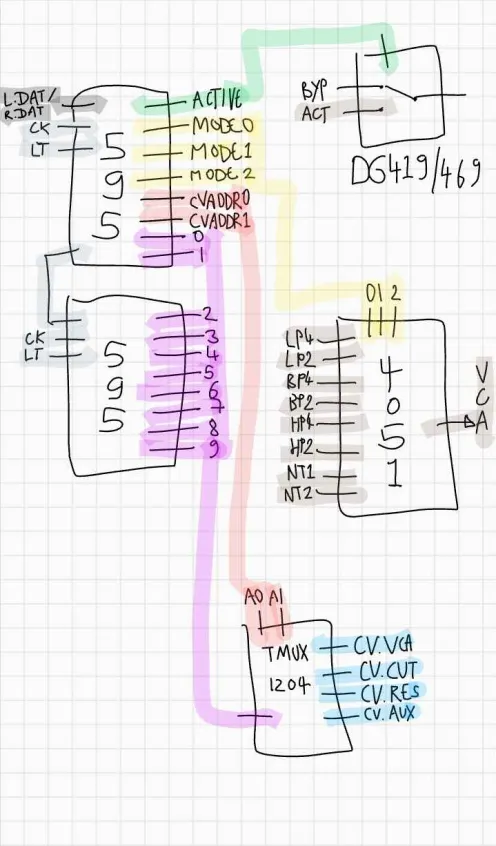 L.DAT/
R.DAT
CK
LT
595
ACTIVE
MODE0
MODE1
MODE2
CVADDR0
CVADDR1
0
1
BYP
ACT
DG419/469
CK
LT
595
2
3
4
5
6
7
8
9
012
LP4
LP2
BP4
BP2
HP4
HP2
NT1
NT2
4051
VCA
A0 A1
TMUX
1204
CV.VCA
CV.CUT
CV.RES
CV.AUX